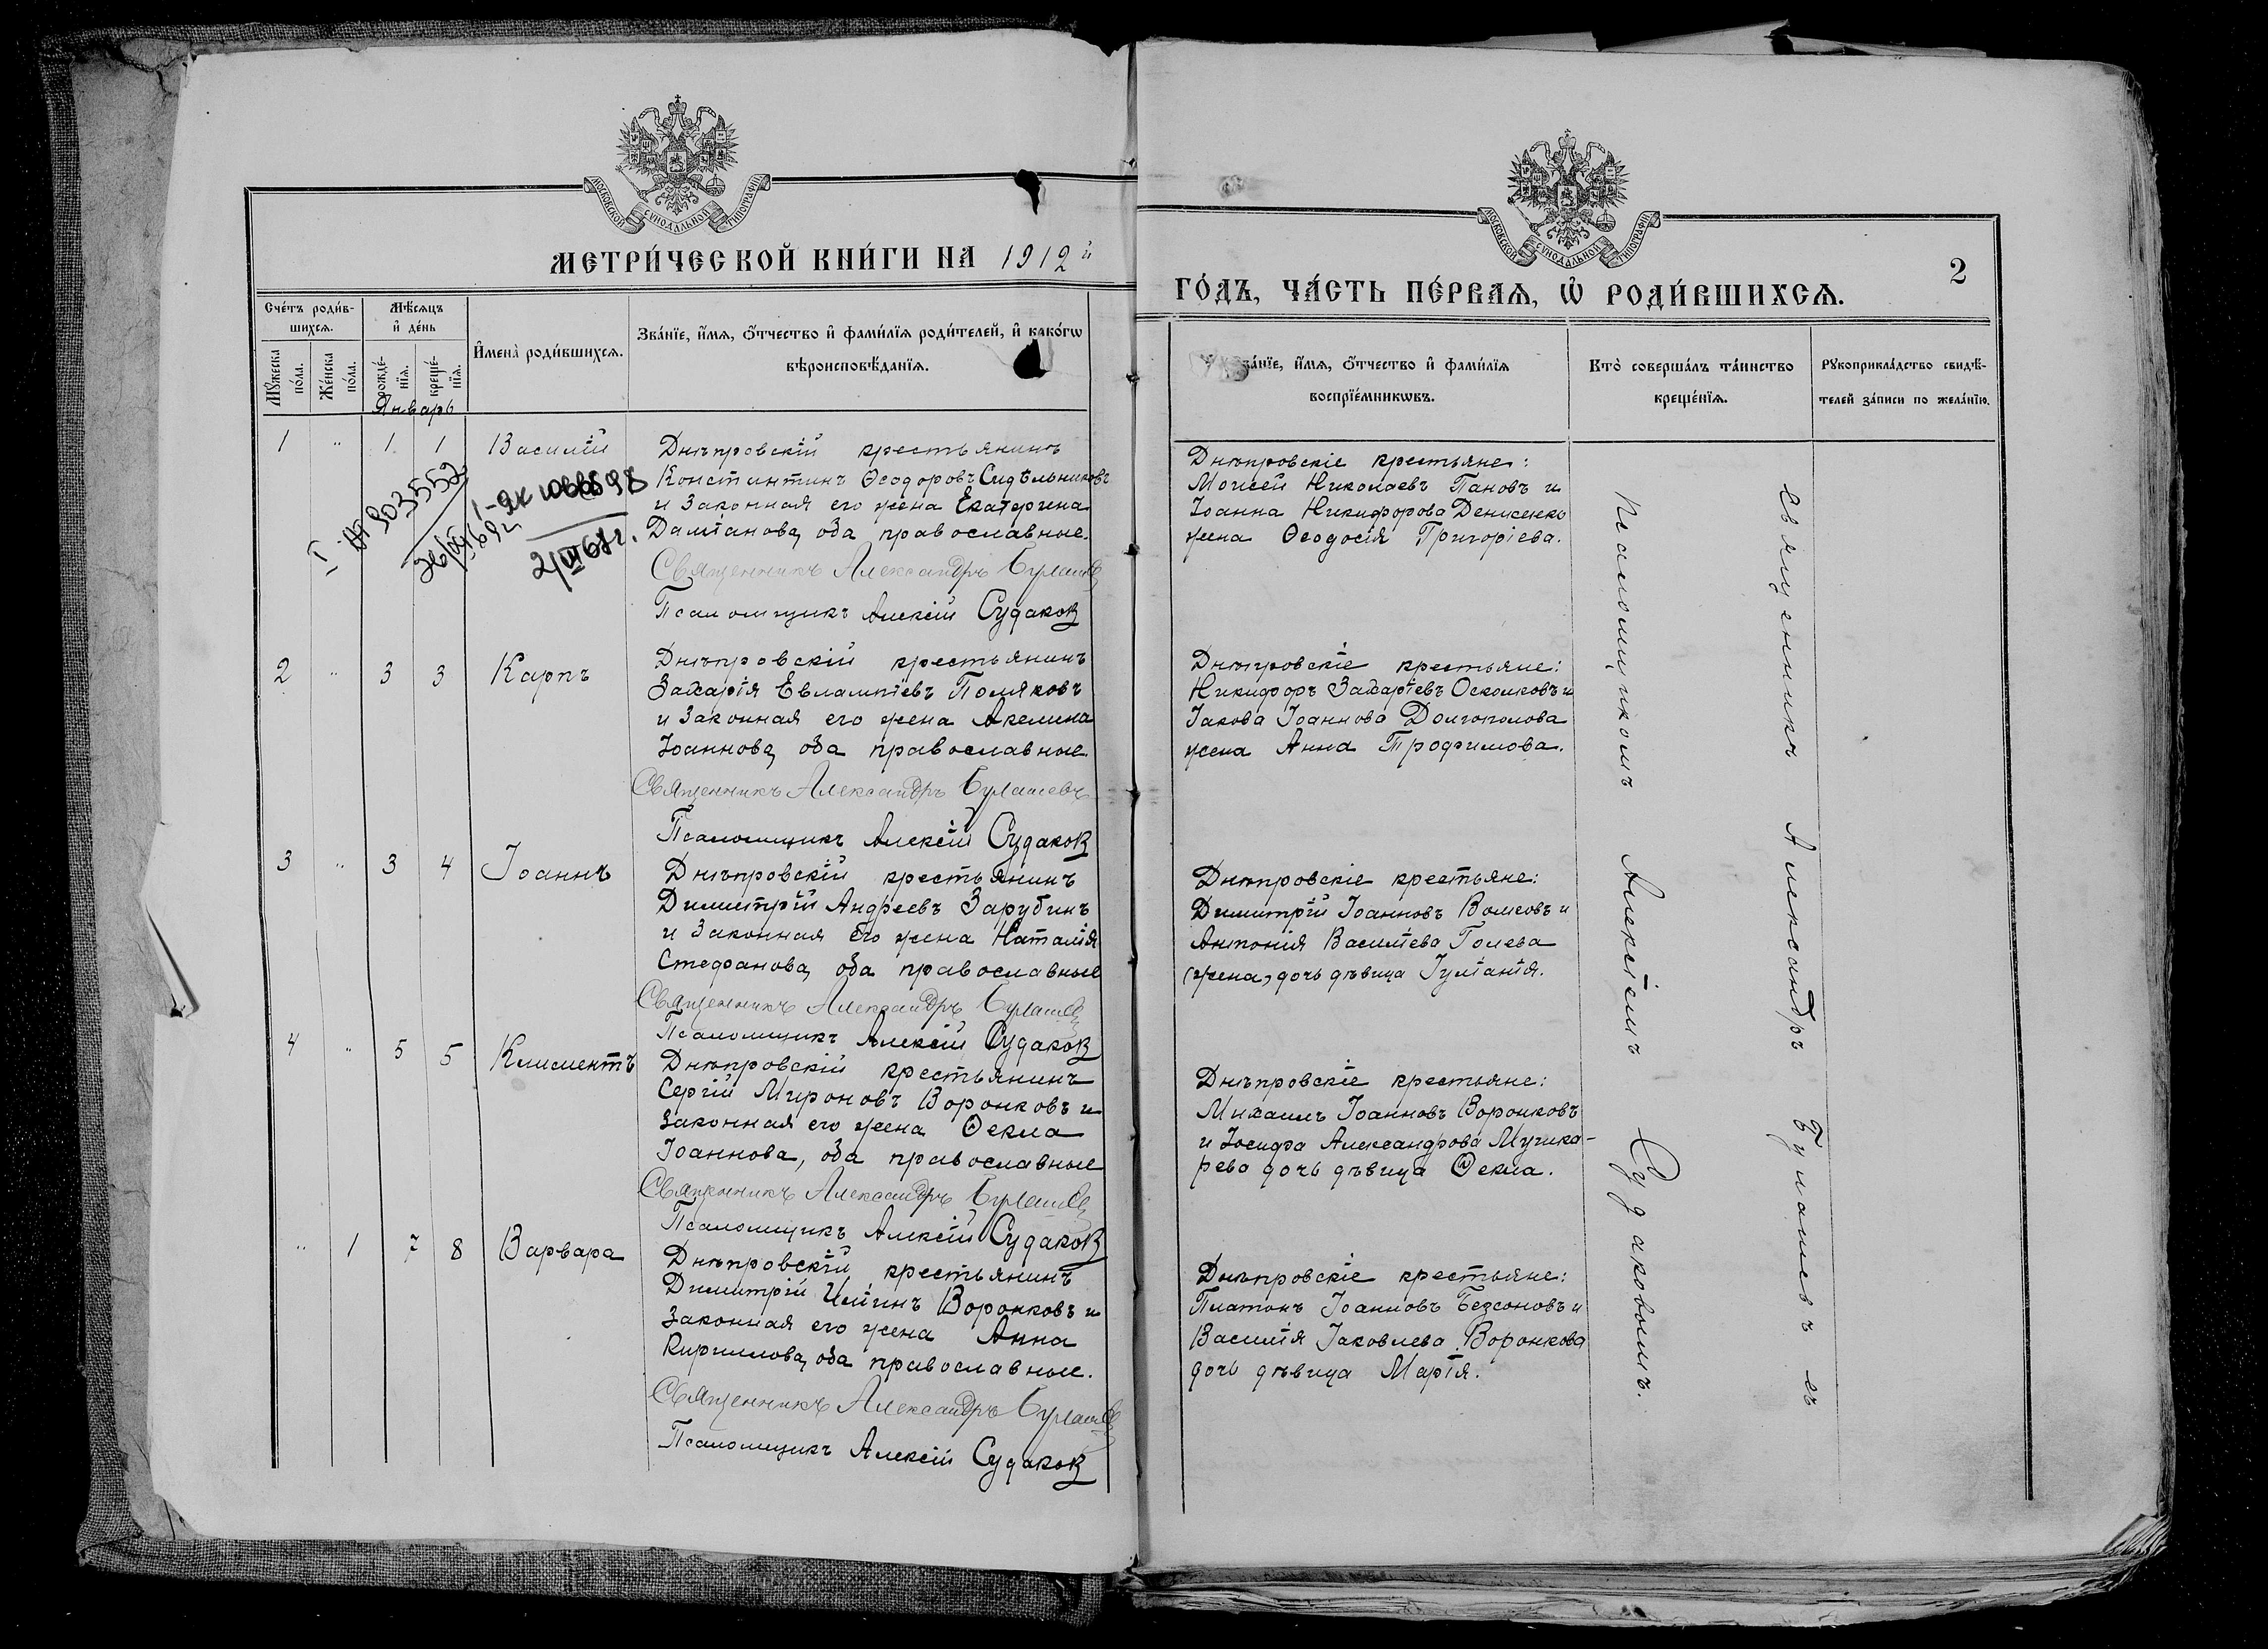 МОСКОВСКОЙ СУНОДАЛЬНОЙ ТИПОГРАФІИ
МЕТРИ́ЧЕСКОЙ КНИ́ГИ НА 1912й
Сче́тъ роди́в-
шихсѧ.
Мꙋ́жеска
по́ла.
Же́нска
по́ла.
Мѣ́сѧцъ
и҆ де́нь
рожде́-
нїѧ.
креще́-
нїѧ.
Январь
И҆мена̀ роди́вшихсѧ.
Зва́нїе, и҆́мѧ, ѻ҆́тчество и҆ фами́лїѧ роди́телей, и҆ како́гѡ
вѣроисповѣ́данїѧ.
1 " 1 1 Василій
Днѣпровскій крестьянинъ
Константинъ Ѳеодоровъ Сидѣльниковъ
и законная его жена Екатерина
Даміанова, оба православные.
Священникъ Александръ Булашев
Псаломщикъ Алексій Судаков
903552
2/VI 67г.
2 " 3 3 Карпъ
Днѣпровскій крестьянинъ
Захарія Евлампіевъ Поляковъ
и законная его жена Акелина
Іоаннова, оба православные
Священникъ Александръ Булашевъ
Псаломщикъ Алексій Судаков
3 " 3 4 Іоаннъ
Днѣпровскій крестьянинъ
Димитрій Андреевъ Зарубинъ
и законная его жена Наталія
Стефанова, оба православные
Священникъ Александръ Булашев
Псаломщикъ Алексій Судаков
4 " 5 5 Климентъ
Днѣпровскій крестьянинъ
Сергій Мироновъ Воронковъ и
законная его жена Ѳекла
Іоаннова, оба православные
Священникъ Александръ Булашев
Псаломщикъ Алексій Судаков
" 1 7 8 Варвара
Днѣпровскій крестьянинъ
Димитрій Иліинъ Воронковъ и
законная его жена Анна
Кириллова, оба православные.
Священникъ Александръ Булашев
Псаломщикъ Алексій Судаков
МОСКОВСКОЙ СУНОДАЛЬНОЙ ТИПОГРАФІИ
2
ГО́ДЪ, ЧА́СТЬ ПЕ́РВАѦ, Ѡ҆ РОДИ́ВШИХСѦ.
Зва́нїе, и҆́мѧ, ѻ҆́тчество и҆ фами́лїѧ
воспрїе́мникѡвъ.
Кто̀ соверша́лъ та́инство
креще́нїѧ.
Рꙋкоприкла́дство свидѣ́-
телей за́писи по жела́нїю.
Днѣпровскіе крестьяне:
Моисей Николаевъ Пановъ и
Іоанна Никифорова Денисенко
жена Ѳеодосія Григоріева.
Днѣпровскіе крестьяне:
Никифоръ Захаріевъ Осколковъ и
Іакова Іоаннова Долгополова
жена Анна Трофимова.
Днѣпровскіе крестьяне:
Димитрій Іоанновъ Волковъ и
Антонія Василіева Голева
(жена) дочь дѣвица Іуліанія.
Днѣпровскіе крестьяне:
Михаилъ Іоанновъ Воронковъ
и Іосифа Александрова
дочь дѣвица Ѳекла.
Днѣпровскіе крестьяне:
Платонъ Іоанновъ Безсоновъ и
Василія Іаковлева Воронкова
дочь дѣвица Марія.
Священникъ Александръ Булашевъ съ
Псаломщикомъ Алексіемъ Судаковымъ.